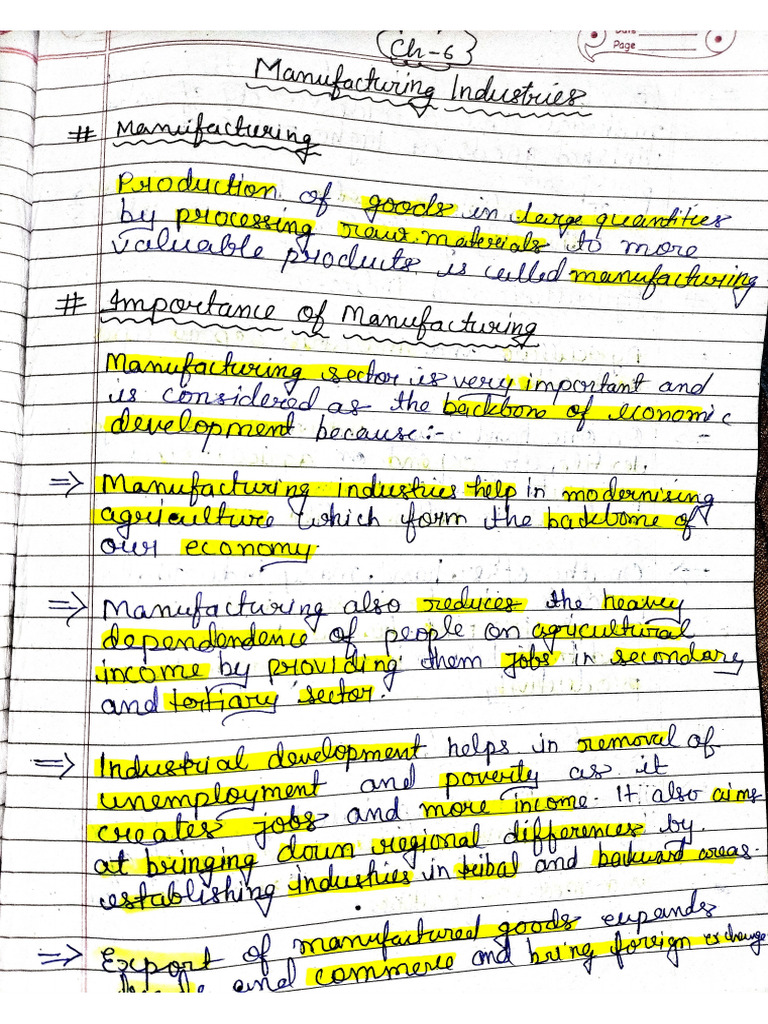 Ch-6
Date
Page
Manufacturing Industries
# Manufacturing
Production of goods in large quantities
by processing raw materials to more
valuable products is called manufacturing
# Importance of Manufacturing
Manufacturing sector is very important and
is considered as the backbone of economic
development because:-
⇒ Manufacturing industries help in modernising
agriculture which form the backbone of
our economy.
⇒ Manufacturing also reduces the heavy
dependence of people on agricultural
income by providing them jobs in secondary
and tertiary sector.
⇒ Industrial development helps in removal of
unemployment and poverty as it
creates jobs and more income. It also aims
at bringing down regional differences by
establishing industries in tribal and backward areas.
⇒ Export of manufactured goods expands
trade and commerce and bring foreign exchange